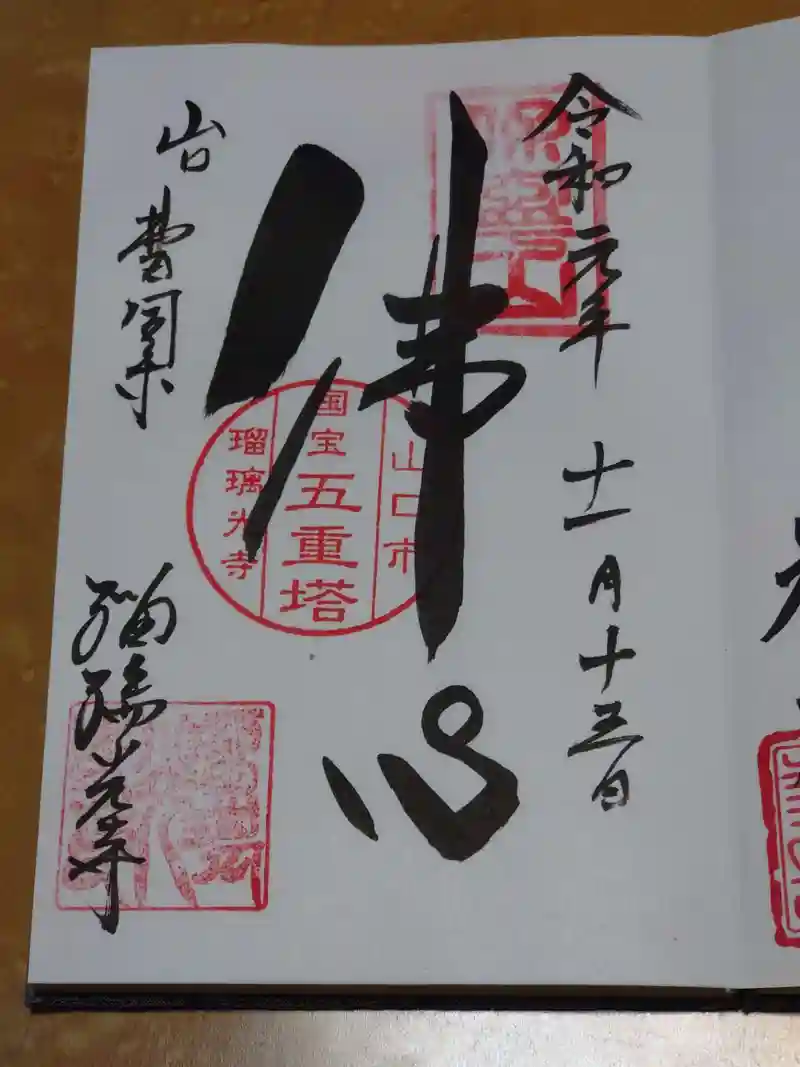 令和元年 十一月十三日
保寧山
佛心
山口市
国宝 五重塔
瑠璃光寺
山口
瑠璃光寺